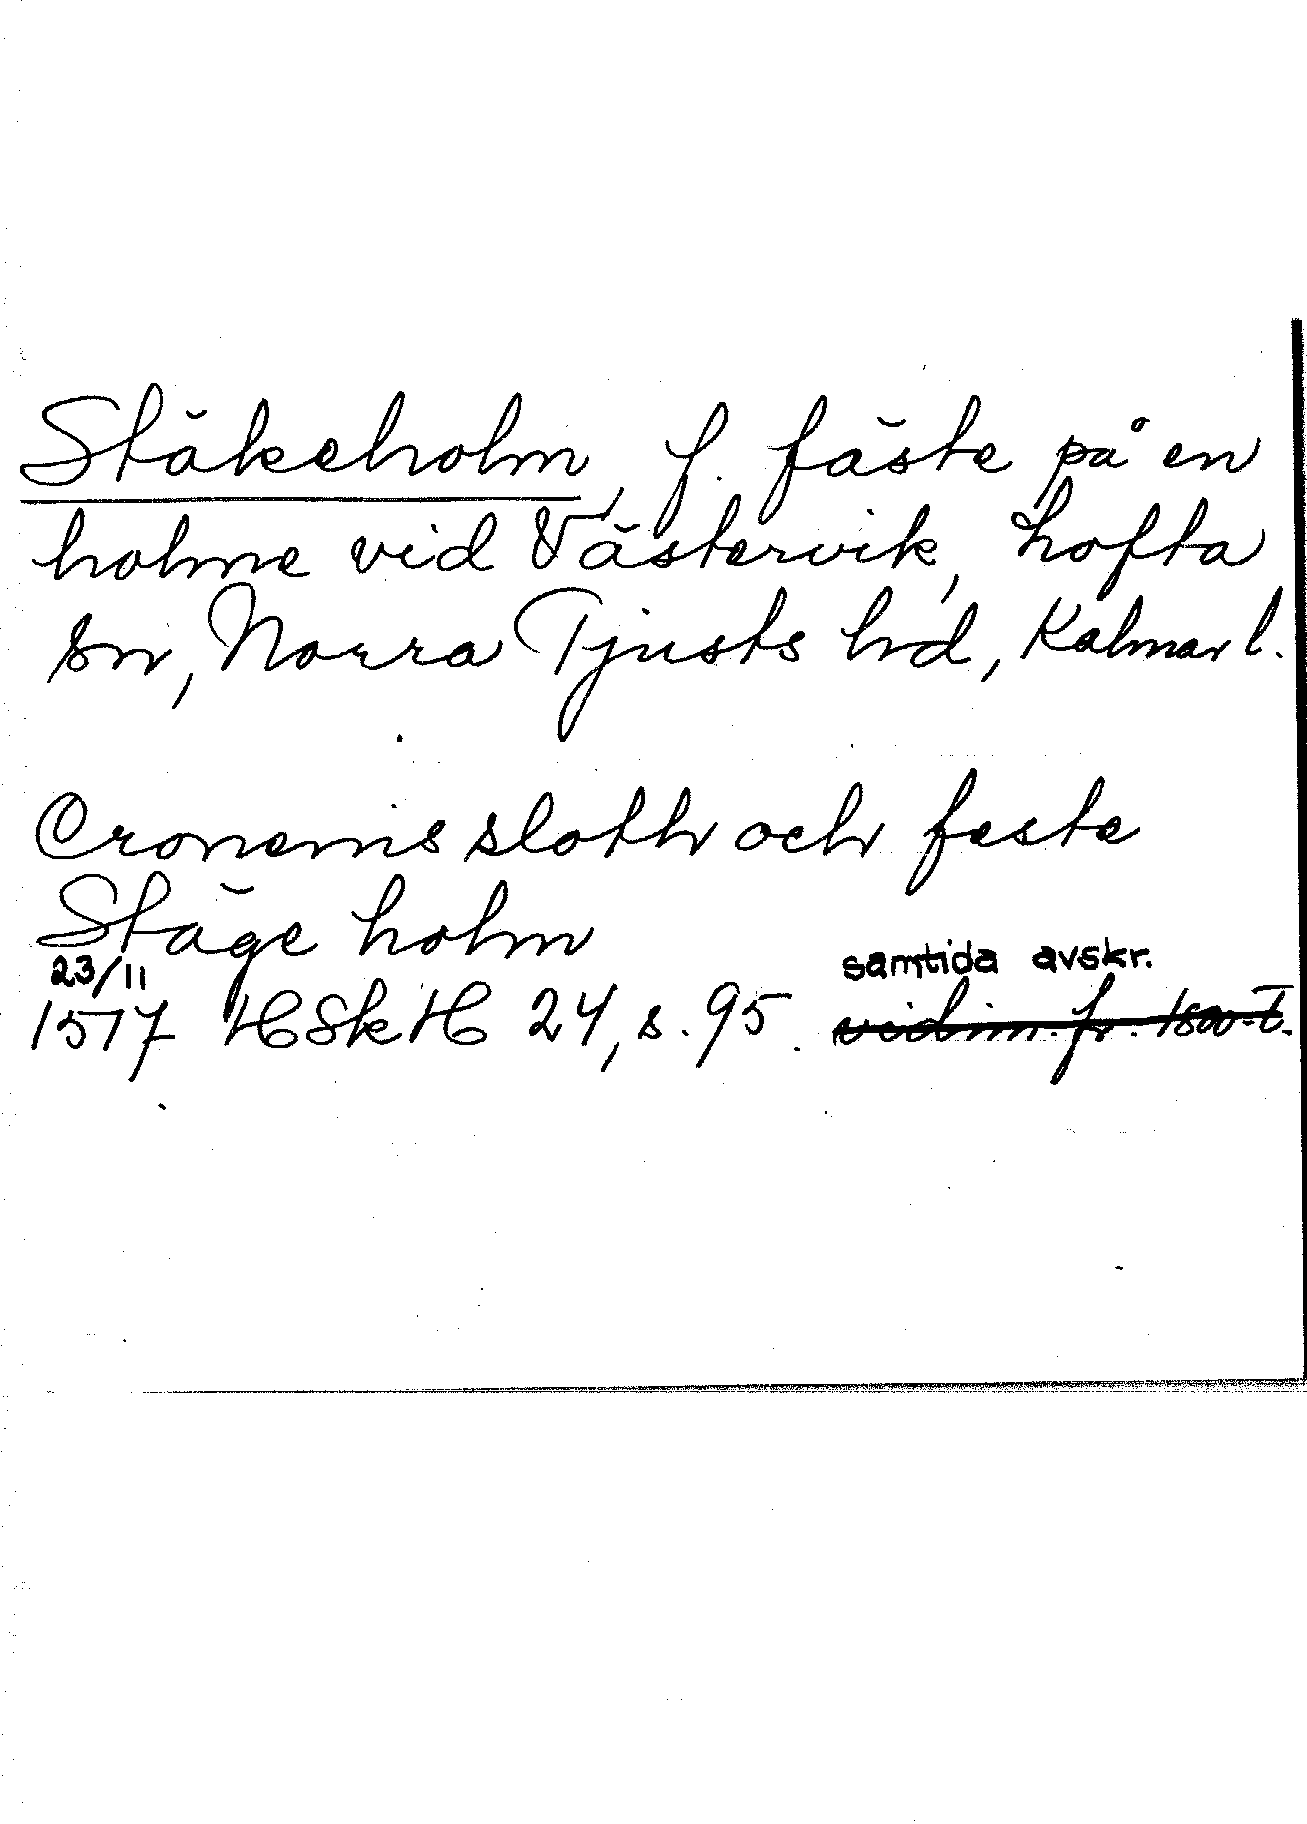 Stäkeholm, f. fäste på en
holme vid Västervik, Lofta
sn, Norra Tjusts hd, Kalmar l.
Cronenns sloth och feste
Stäge holm
23/11 samtida avskr.
1517 HSkH 24, s. 95. vidim. fr. 1500-t.